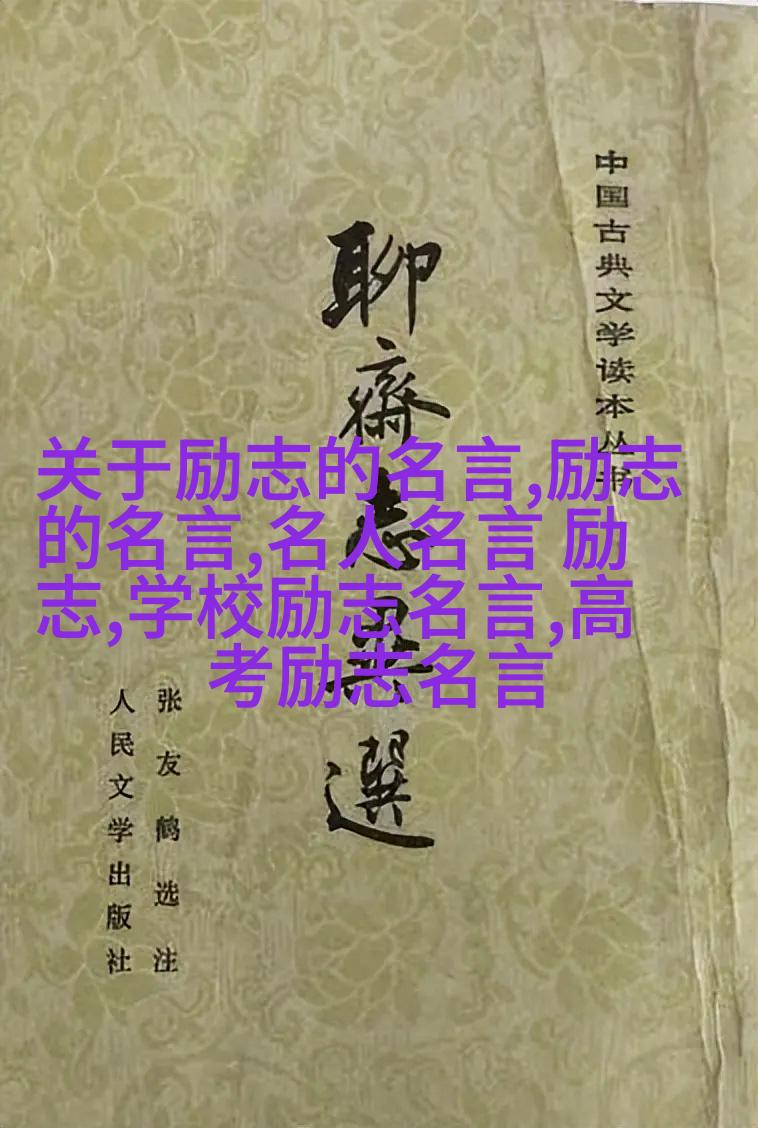 中国古典文学读本丛书
聊斋志异选
关于励志的名言,励志
的名言,名人名言 励
志,学校励志名言,高
考励志名言
张友鹤选注
人民文学出版社